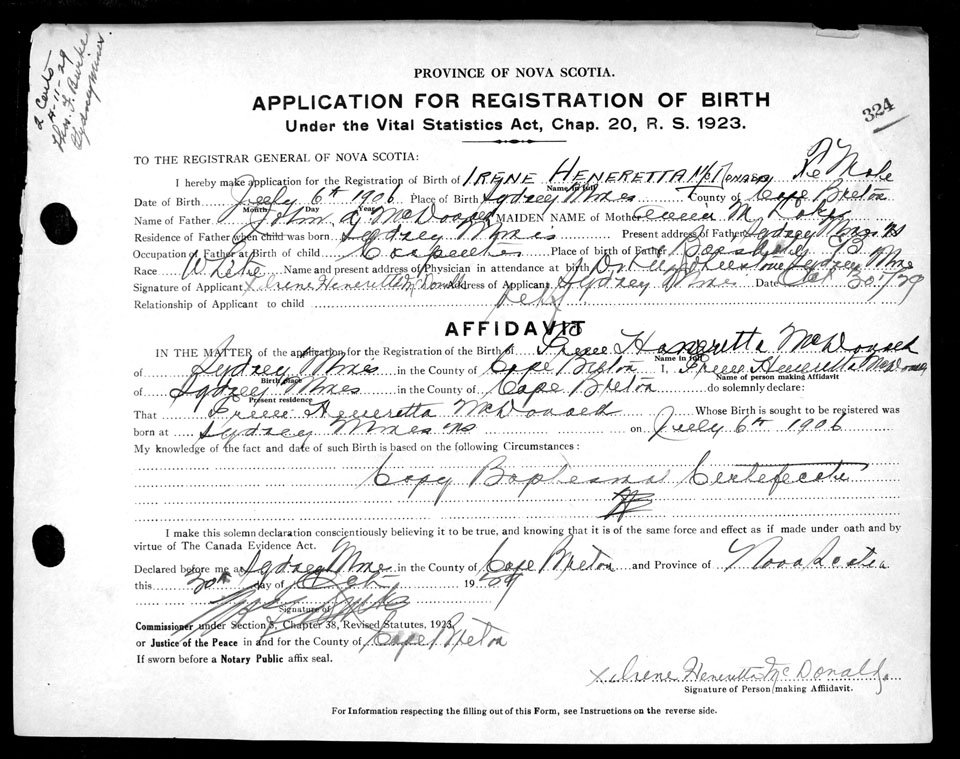 2 Cents
4-11-29
Thos. F. Burke
Sydney Mines.
PROVINCE OF NOVA SCOTIA.
APPLICATION FOR REGISTRATION OF BIRTH
324
Under the Vital Statistics Act, Chap. 20, R. S. 1923.
TO THE REGISTRAR GENERAL OF NOVA SCOTIA:
Fe Male
I hereby make application for the Registration of Birth of IRENE HENERETTA McDONALD
Name in full
Date of Birth July 6th 1906 Place of Birth Sydney Mines County of Cape Breton
Month Day Year
Name of Father John McDonald MAIDEN NAME of Mother M
Residence of Father when child was born Sydney Mines Present address of Father Sydney Mines NS
Occupation of Father at Birth of child Carpenter Place of birth of Father C B
Race White Name and present address of Physician in attendance at birth Dr Sydney Mines
Signature of Applicant x Irene Heneretta McDonald Address of Applicant Sydney Mines Date Oct 30th/29
Relationship of Applicant to child Self
AFFIDAVIT
IN THE MATTER of the application for the Registration of the Birth of Irene Heneretta McDonald
Name in full
of Sydney Mines in the County of Cape Breton I, Irene Heneretta McDonald
Birth place Name of person making Affidavit
of Sydney Mines in the County of Cape Breton do solemnly declare:
Present residence
That Irene Heneretta McDonald Whose Birth is sought to be registered was
born at Sydney Mines NS on July 6th 1906
My knowledge of the fact and date of such Birth is based on the following Circumstances:
Copy Baptismal Certificate
I make this solemn declaration conscientiously believing it to be true, and knowing that it is of the same force and effect as if made under oath and by
virtue of The Canada Evidence Act.
Declared before me at Sydney Mines in the County of Cape Breton and Province of Nova Scotia
this 30th day of Oct 1929
Signature of
Commissioner under Section 5, Chapter 38, Revised Statutes, 1923,
or Justice of the Peace in and for the County of Cape Breton
If sworn before a Notary Public affix seal.
x Irene Heneretta McDonald
Signature of Person making Affidavit.
For Information respecting the filling out of this Form, see Instructions on the reverse side.